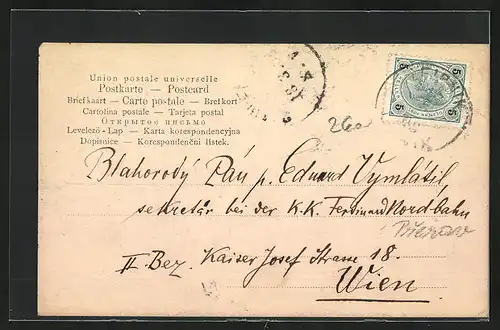 Union postale universelle
Postkarte — Postcard
Briefkaart — Carte postale — Brefkort
Cartolina postale — Tarjeta postal
ОТКРЫТОЕ ПИСЬМО
Levelező-Lap — Karta korespondencyjna
Dopisnice — Korespondenční lístek.
5 5
5 5
26a
Blahorodý Pán p. Eduard Vymlátil,
sekretár bei der K.K. Ferdinand Nordbahn
II. Bez. Kaiser Josef Strasse 18.
Wien